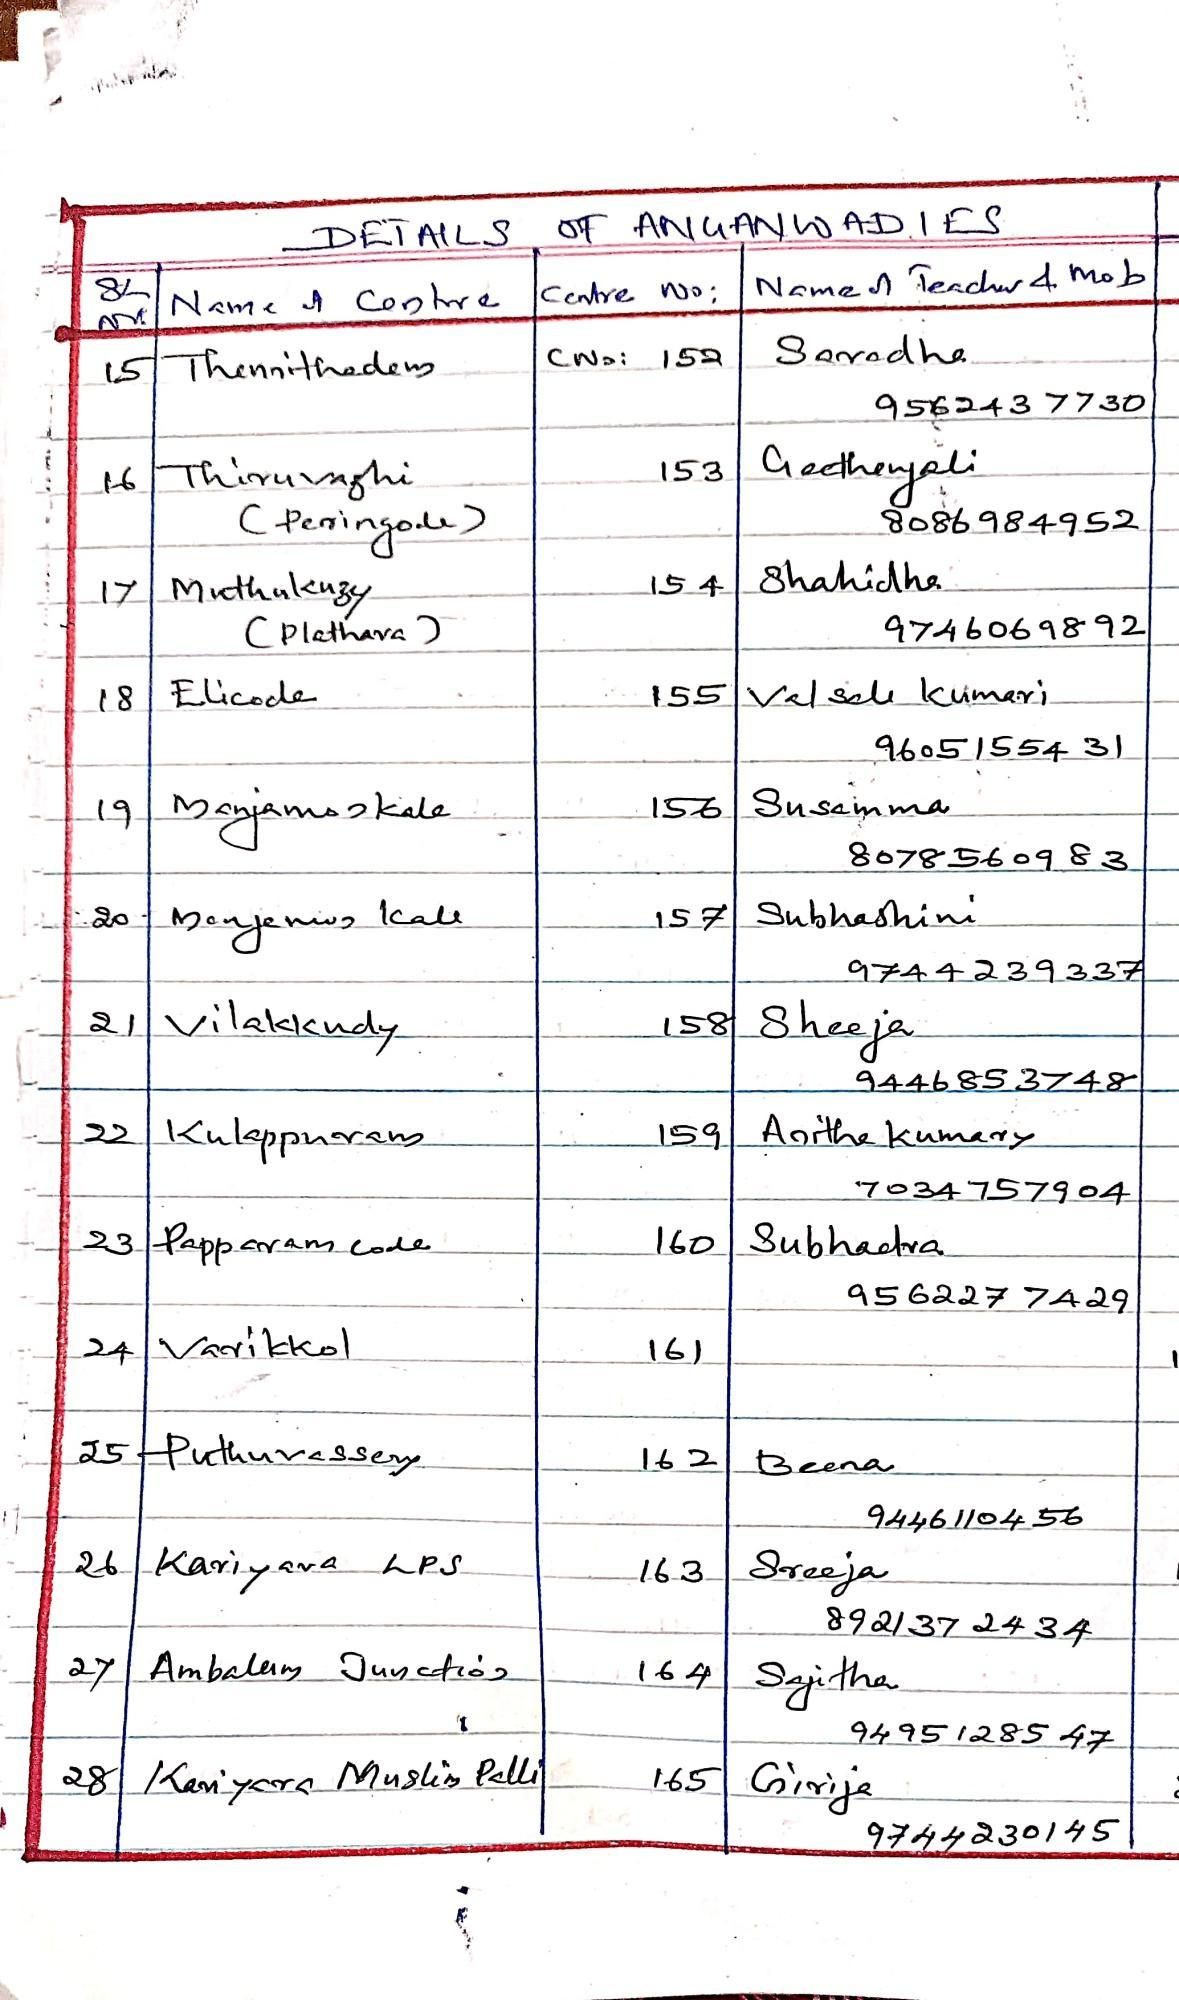 DETAILS OF ANGANWADIES
SL No: Name of Centre Centre No: Name of Teacher & Mob
15 Thennithadem CNo: 152 Saradha
9562437730
16 Thiruvazhi 153 Geethenjali
(Peringode) 8086984952
17 Muthukuzy 154 Shahidha
(Plathara) 9746069892
18 Elicode 155 Valsala Kumari
9605155431
19 Manjamonkala 156 Susamma
8078560983
20 157 Subhashini
9744239337
21 Vilakkudy 158 Sheeja
9446853748
22 Kulappuram 159 Anitha Kumary
7034757904
23 Papparamcode 160 Subhadra
9562277429
24 Varikkol 161
25 Puthuvassery 162 Beena
9446110456
26 Kariyara LPS 163 Sreeja
8921372434
27 Ambalam Junction 164 Sajitha
9495128547
28 Kariyara Muslim Palli 165 Girija
9744230145